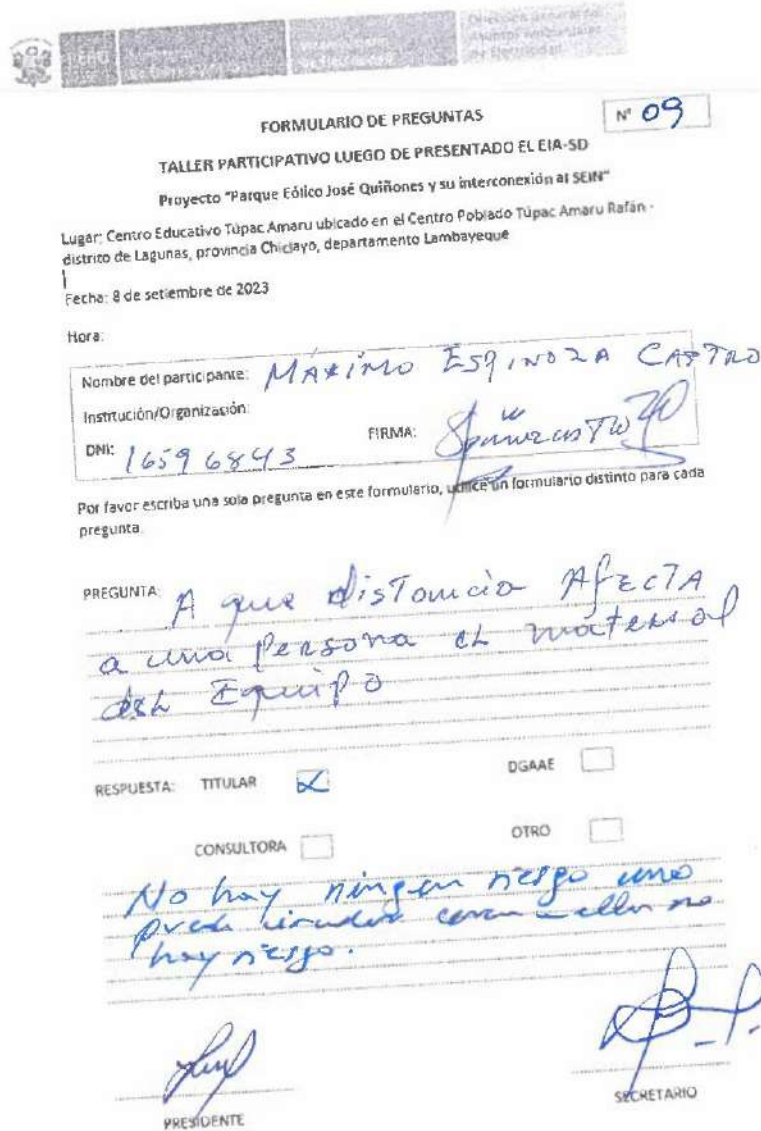 PERÚ
Dirección General de
Asuntos Ambientales
de Electricidad
FORMULARIO DE PREGUNTAS
N° 09
TALLER PARTICIPATIVO LUEGO DE PRESENTADO EL EIA-SD
Proyecto "Parque Eólico José Quiñones y su interconexión al SEIN"
Lugar: Centro Educativo Túpac Amaru ubicado en el Centro Poblado Túpac Amaru Rafán -
distrito de Lagunas, provincia Chiclayo, departamento Lambayeque
Fecha: 8 de setiembre de 2023
Hora:
Nombre del participante: MAXIMO ESPINOZA CASTRO
Institución/Organización:
DNI: 16596843 FIRMA:
Por favor escriba una sola pregunta en este formulario, utilice un formulario distinto para cada
pregunta.
PREGUNTA: A que distancia AfECTA
a una persona el material
del Equipo
RESPUESTA: TITULAR DGAAE
CONSULTORA OTRO
No hay ningun riesgo uno
cerca no
hay riesgo.
PRESIDENTE SECRETARIO